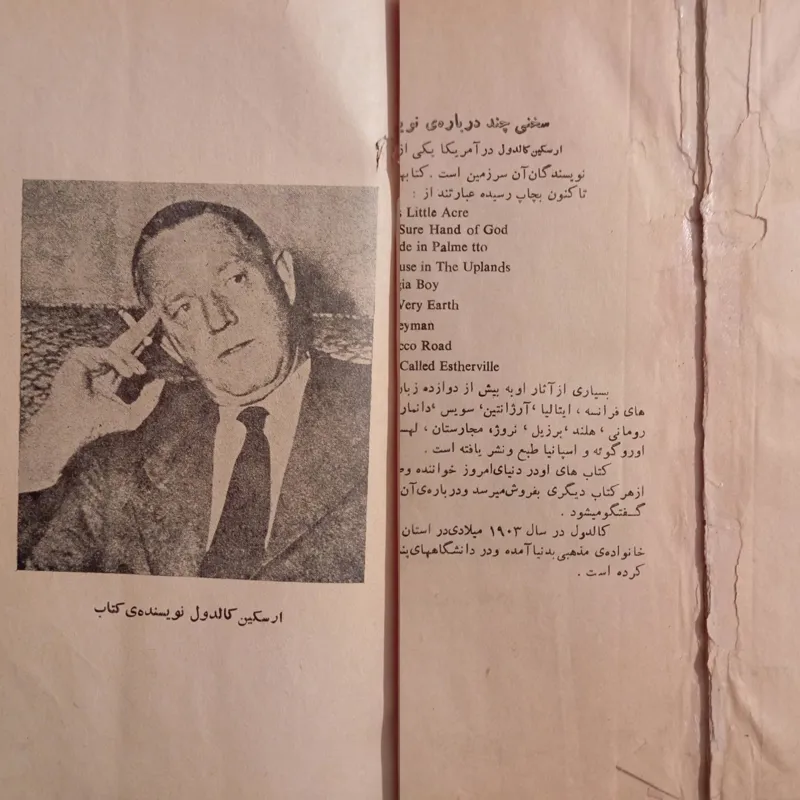 ارسکین کالدول نویسنده‌ی کتاب
سخنی چند درباره‌ی
ارسکین کالدول در آمریکا یکی از
نویسندگان آن سرزمین است . کتابه
تاکنون بچاپ رسیده عبارتند از :
s Little Acre
Sure Hand of God
de in Palme tto
use in The Uplands
gia Boy
Very Earth
eyman
cco Road
Called Estherville
بسیاری از آثار او به بیش از دوازده
های فرانسه ، ایتالیا ، آرژانتین ، سویس ، دانمار
رومانی ، هلند ، برزیل ، نروژ ، مجارستان ،
اوروگوئه و اسپانیا طبع و نشر یافته است .
کتاب های او در دنیای امروز خواننده
از هر کتاب دیگری بفروش میرسد و درباره‌ی آن
گفتگو میشود .
کالدول در سال ۱۹۰۳ میلادی در استان
خانواده‌ی مذهبی بدنیا آمده و در دانشگاههای
کرده است .